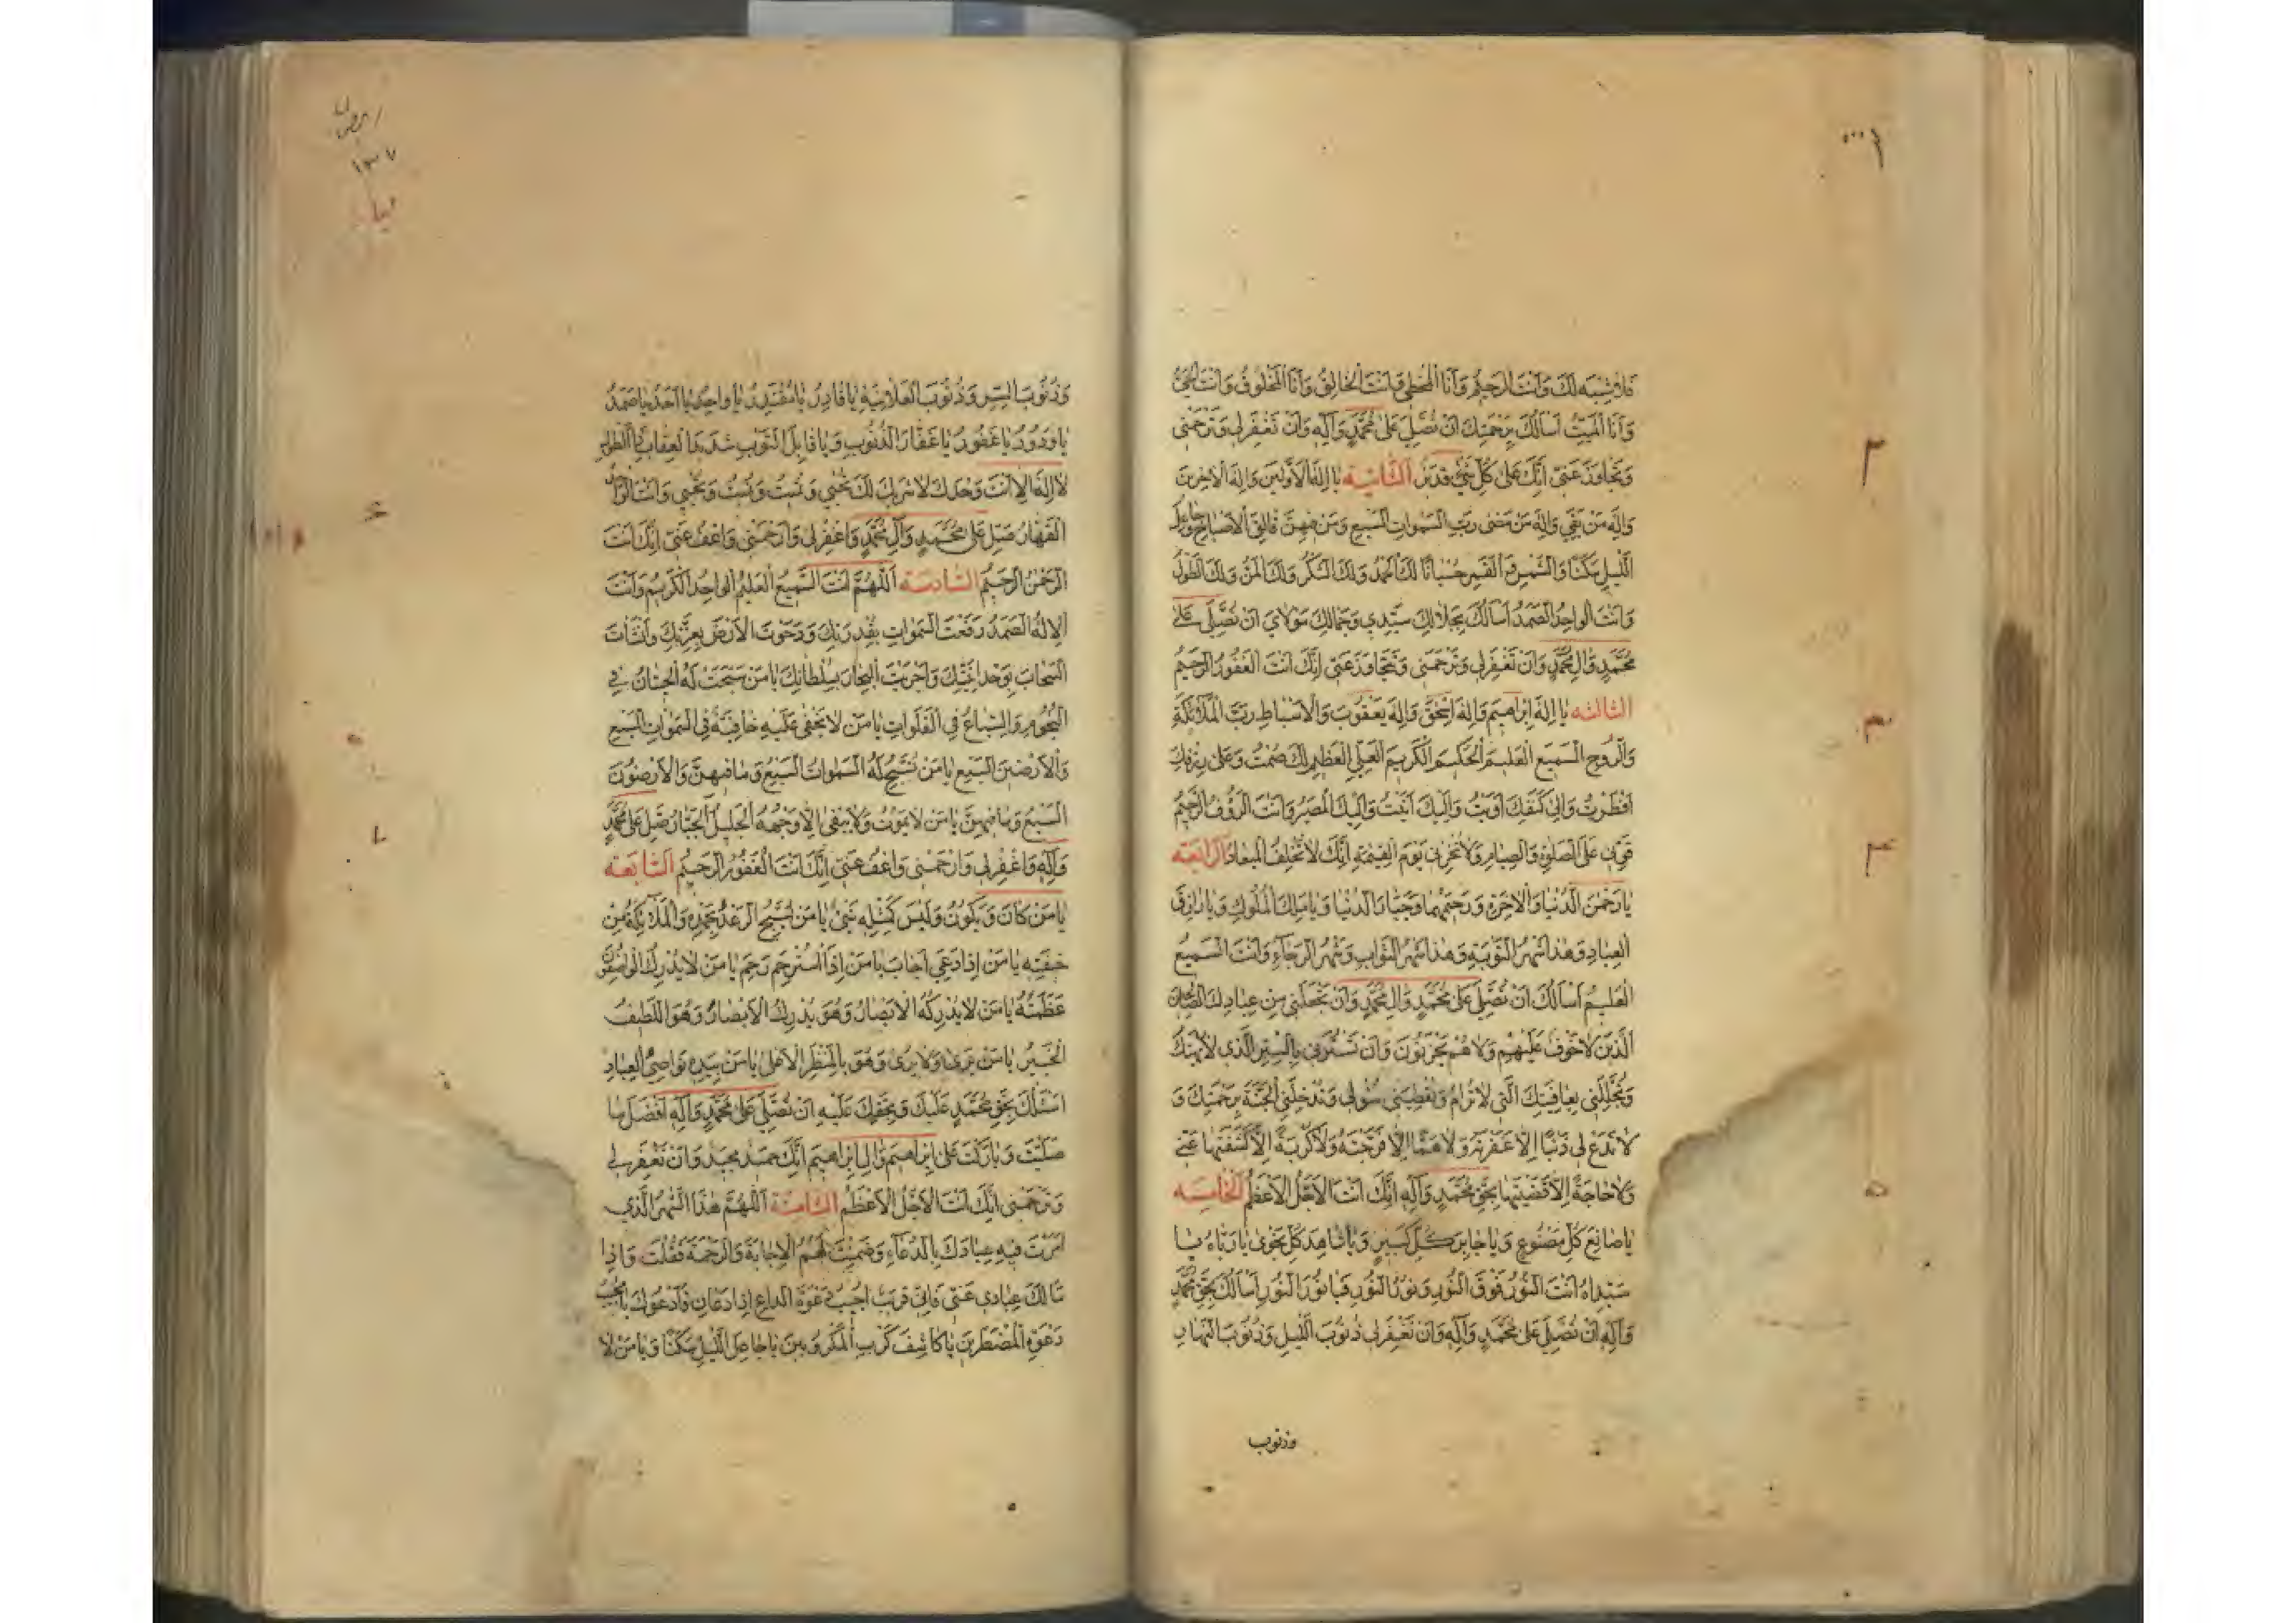 فلا شبيه لك وَاَنتَ الرَّحِيمُ وَاَنَا المُخطِئُ وَاَنتَ الخَالِقُ وَاَنَا المَخلُوقُ وَاَنتَ الحَيُّ
وَاَنَا المَيِّتُ اَسأَلُكَ بِرَحمَتِكَ اَن تُصَلِّيَ عَلى مُحَمَّدٍ وَآلِهِ وَاَن تَغفِرَ لي وَتَرحَمَني
وَتَجاوَزَ عَنّي اِنَّكَ عَلى كُلِّ شَيءٍ قَدير الثَّانِيَه يا اِلهَ الاَوَّلينَ وَاِلهَ الآخِرينَ
وَاِلهَ مَن بَقِيَ وَاِلهَ مَن مَضى رَبَّ السَّمواتِ السَّبعِ وَمَن فيهِنَّ فالِقَ الاَصباحِ وَجاعِلَ
اللَّيلِ سَكَنًا وَالشَّمسِ وَالقَمَرِ حُسبانًا لَكَ الحَمدُ وَلَكَ الشُّكرُ وَلَكَ المَنُّ وَلَكَ الطَّولُ
وَاَنتَ الواحِدُ الصَّمَدُ اَسأَلُكَ بِجَلالِكَ سَيِّدي وَجَمالِكَ مَولايَ اَن تُصَلِّيَ عَلى
مُحَمَّدٍ وَآلِ مُحَمَّدٍ وَاَن تَغفِرَ لي وَتَرحَمَني وَتَجاوَزَ عَنّي اِنَّكَ اَنتَ الغَفُورُ الرَّحيمُ
الثالثه يا اِلهَ اِبراهيمَ وَاِلهَ اِسحقَ وَاِلهَ يَعقُوبَ وَالاَسباطِ رَبَّ المَلائِكَةِ
وَالرُّوحِ السَّميعَ العَليمَ الحَكيمَ الكَريمَ العَلِيَّ العَظيمَ لَكَ صُمتُ وَعَلى رِزقِكَ
اَفطَرتُ وَاِلى كَنَفِكَ اَوَيتُ وَاِلَيكَ اَنَبتُ وَاِلَيكَ المَصيرُ وَاَنتَ الرَّؤُفُ الرَّحيمُ
قَوِّني عَلَى الصَّلوةِ وَالصِّيامِ وَلا تُخزِني يَومَ القِيمَةِ اِنَّكَ لا تُخلِفُ الميعادَ الرابعه
يا رَحمنَ الدُّنيا وَالآخِرَةِ وَرَحيمَهُما وَجَبّارَ الدُّنيا وَيا مالِكَ المُلُوكِ وَيا رازِقَ
العِبادِ وَهذا شَهرُ التَّوبَةِ وَهذا شَهرُ الثَّوابِ وَشَهرُ الرَّجاءِ وَاَنتَ السَّميعُ
العَليمُ اَسأَلُكَ اَن تُصَلِّيَ عَلى مُحَمَّدٍ وَآلِ مُحَمَّدٍ وَاَن تَجعَلَني مِن عِبادِكَ الصّالِحينَ
الَّذينَ لا خَوفٌ عَلَيهِم وَلا هُم يَحزَنُونَ وَاَن تَستُرَني بِالسِّترِ الَّذي لا يُهتَكُ
وَتُجَلِّلَني بِعافِيَتِكَ الَّتي لا تُرامُ وَتُعطِيَني سُؤلي وَتُدخِلَني الجَنَّةَ بِرَحمَتِكَ وَ
لا تَدَع لي ذَنبًا اِلاّ غَفَرتَهُ وَلا هَمًّا اِلاّ فَرَّجتَهُ وَلا كُربَةً اِلاّ كَشَفتَها عَنّي
وَلا حاجَةً اِلاّ قَضَيتَها بِحَقِّ مُحَمَّدٍ وَآلِهِ اِنَّكَ اَنتَ الاَجَلُّ الاَعظَمُ الخامِسَه
يا صانِعَ كُلِّ مَصنُوعٍ وَيا جابِرَ كُلِّ كَسيرٍ وَيا شاهِدَ كُلِّ نَجوى يا رَبّاهُ يا
سَيِّداهُ اَنتَ النُّورُ فَوقَ النُّورِ وَنُورُ النُّورِ فَيا نُورَ النُّورِ اَسأَلُكَ بِحَقِّ مُحَمَّدٍ
وَآلِهِ اَن تُصَلِّيَ عَلى مُحَمَّدٍ وَآلِهِ وَاَن تَغفِرَ لي ذُنُوبَ اللَّيلِ وَذُنُوبَ النَّهارِ
وذنوب
٢
٣
٤
٥
١٣٧
وَذُنُوبَ السِّرِ وَذُنُوبَ العَلانِيَةِ يا قادِرُ يا مُقتَدِرُ يا واحِدُ يا اَحَدُ يا صَمَدُ
يا وَدُودُ يا غَفُورُ يا غَفّارَ الذُّنُوبِ وَيا قابِلَ التَّوبِ شَديدَ العِقابِ ذَا الطَّولِ
لا اِلهَ اِلاّ اَنتَ وَحدَكَ لا شَريكَ لَكَ تُحيي وَتُميتُ وَتُميتُ وَتُحيي وَاَنتَ الواحِدُ
القَهّارُ صَلِّ عَلى مُحَمَّدٍ وَآلِ مُحَمَّدٍ وَاغفِر لي وَارحَمني وَاعفُ عَنّي اِنَّكَ اَنتَ
الرَّحمنُ الرَّحيمُ السّادِسَه اَللّهُمَّ اَنتَ السَّميعُ العَليمُ الواحِدُ الكَريمُ وَاَنتَ
الاِلهُ الصَّمَدُ رَفَعتَ السَّمواتِ بِقُدرَتِكَ وَدَحَوتَ الاَرضَ بِعِزَّتِكَ وَاَنشَأتَ
السَّحابَ بِوَحدانِيَّتِكَ وَاَجرَيتَ البِحارَ بِسُلطانِكَ يا مَن سَبَّحَت لَهُ الحيتانُ في
البُحُورِ وَالسِّباعُ فِي الفَلَواتِ يا مَن لا يَخفى عَلَيهِ خافِيَةٌ فِي السَّمواتِ السَّبعِ
وَالاَرَضينَ السَّبعِ يا مَن تُسَبِّحُ لَهُ السَّمواتُ السَّبعُ وَما فيهِنَّ وَالاَرَضُونَ
السَّبعُ وَما فيهِنَّ يا مَن لا يَمُوتُ وَلا يَبقى اِلاّ وَجهُهُ الجَليلُ الجَبّارُ صَلِّ عَلى مُحَمَّدٍ
وَآلِهِ وَاغفِر لي وَارحَمني وَاعفُ عَنّي اِنَّكَ اَنتَ الغَفُورُ الرَّحيمُ السّابِعَه
يا مَن كانَ وَيَكُونُ وَلَيسَ كَمِثلِهِ شَيءٌ يا مَن يُسَبِّحُ الرَّعدُ بِحَمدِهِ وَالمَلائِكَةُ مِن
خيفَتِهِ يا مَن اِذا دُعِيَ اَجابَ يا مَن اِذَا استُرحِمَ رَحِمَ يا مَن لا يُدرِكُ الواصِفُونَ
عَظَمَتَهُ يا مَن لا تُدرِكُهُ الاَبصارُ وَهُوَ يُدرِكُ الاَبصارَ وَهُوَ اللَّطيفُ
الخَبيرُ يا مَن يَرى وَلا يُرى وَهُوَ بِالمَنظَرِ الاَعلى يا مَن بِيَدِهِ نَواصِي العِبادِ
اَسئَلُكَ بِحَقِّ مُحَمَّدٍ عَلَيكَ وَبِحَقِّكَ عَلَيهِ اَن تُصَلِّيَ عَلى مُحَمَّدٍ وَآلِهِ اَفضَلَ ما
صَلَّيتَ وَبارَكتَ عَلى اِبراهيمَ وَآلِ اِبراهيمَ اِنَّكَ حَميدٌ مَجيدٌ وَاَن تَغفِرَ لي
وَتَرحَمَني اِنَّكَ اَنتَ الاَجَلُّ الاَعظَمُ الثّامِنَة اَللّهُمَّ هذَا الشَّهرُ الَّذي
اَمَرتَ فيهِ عِبادَكَ بِالدُّعاءِ وَضَمِنتَ لَهُمُ الاِجابَةَ وَالرَّحمَةَ فَقُلتَ وَاِذا
سَأَلَكَ عِبادي عَنّي فَاِنّي قَريبٌ اُجيبُ دَعوَةَ الدّاعِ اِذا دَعانِ فَاَدعُوكَ يا مُجيبَ
دَعوَةِ المُضطَرّينَ يا كاشِفَ كَربِ المَكرُوبينَ يا جاعِلَ اللَّيلِ سَكَنًا وَيا مَن لا